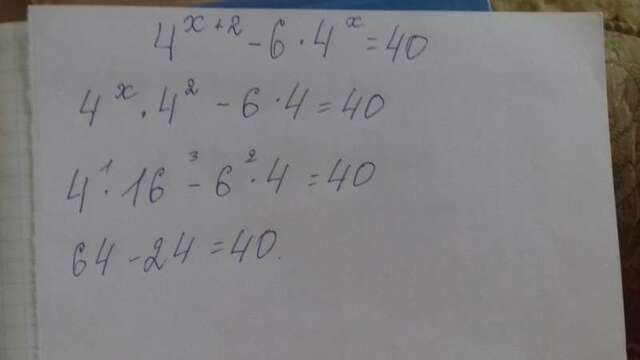 4^{x+2} - 6 · 4^x = 40
4^x · 4^2 - 6 · 4 = 40
4^1 · 16 - 6 · 4 = 40
64 - 24 = 40.